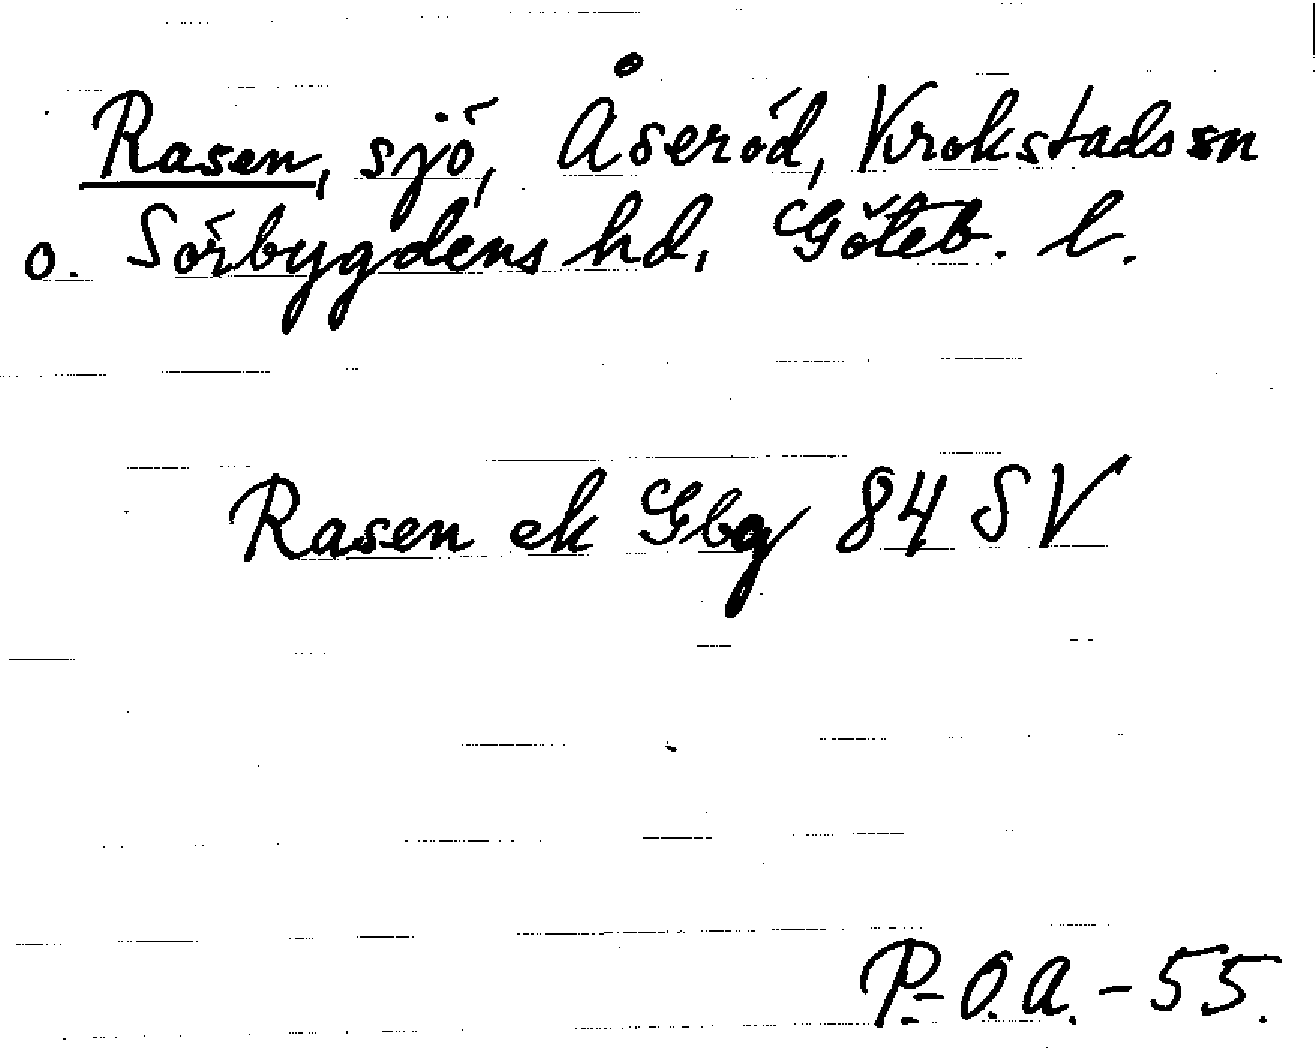 Rasen, sjö, Åseröd, Krokstads sn
o. Sörbygdens hd, Göteb. l.
Rasen ek Gbg 84 SV
P.-O.A.-55.